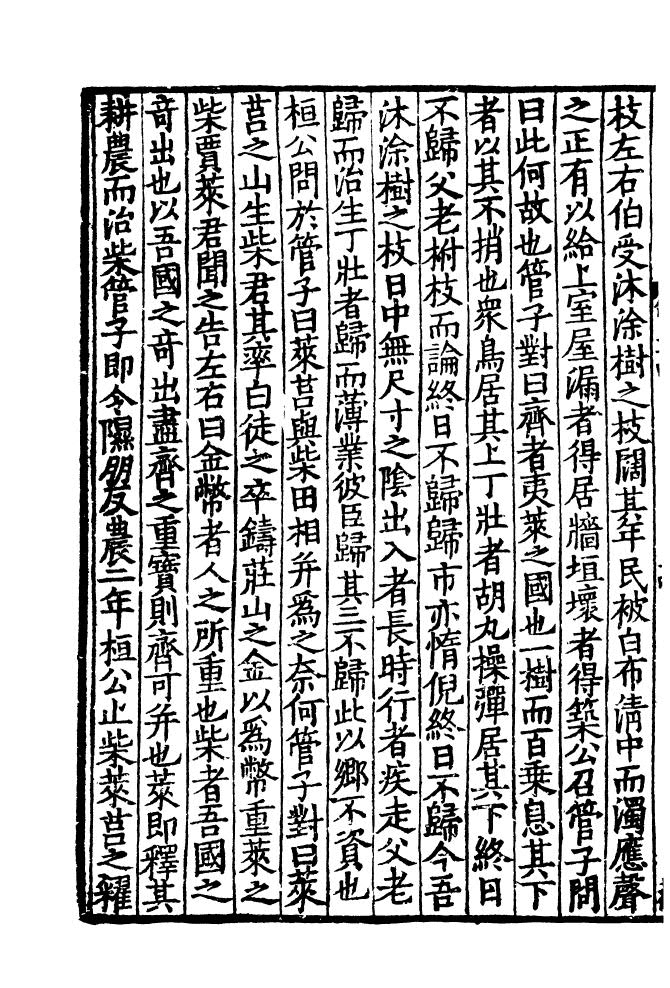 枝左右伯受沐涂樹之枝闊其年民被白布清中而濁應聲
之正有以給上室屋漏者得居牆垣壞者得築公召管子問
曰此何故也管子對曰齊者夷萊之國也一樹而百乗息其下
者以其不捎也衆鳥居其上丁壯者胡丸操彈居其下終日
不歸父老柎枝而論終日不歸歸市亦惰倪終日不歸今吾
沐涂樹之枝日中無尺寸之隂出入者長時行者疾走父老
歸而治生丁壯者歸而薄業彼臣歸其三不歸此以鄉不資也
桓公問於管子曰萊莒與柴田相并爲之奈何管子對曰萊
莒之山生柴君其率白徒之卒鑄莊山之金以爲幣重萊之
柴賈萊君聞之告左右曰金幣者人之所重也柴者吾國之
竒出也以吾國之竒出盡齊之重寶則齊可并也萊即釋其
耕農而治柴管子即令隰朋反農二年桓公止柴萊莒之糴